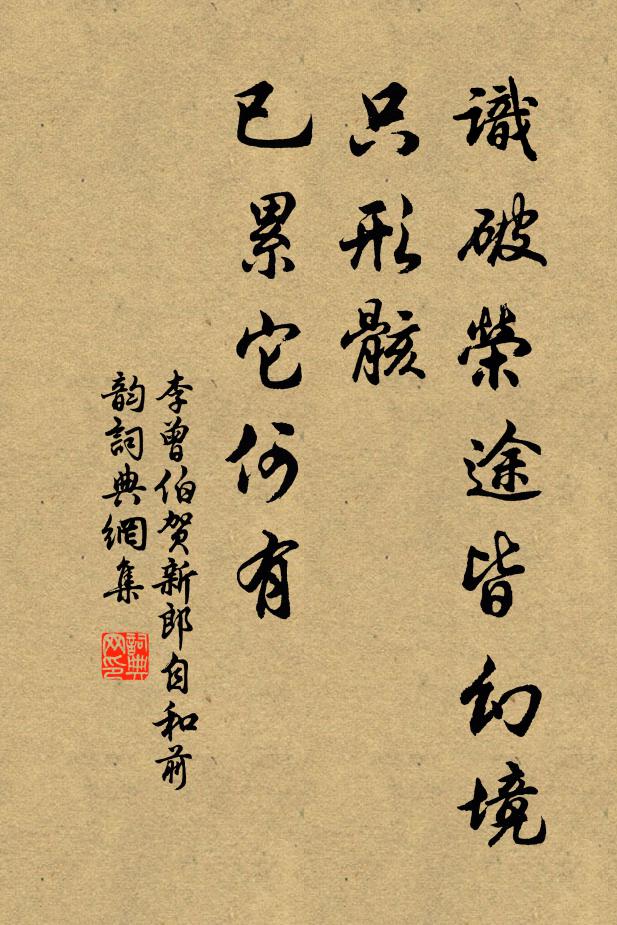 識破榮途皆幻境
只形骸
已累它何有
李曾伯賀新郎自和前
韵詞典網集
詞典
网印